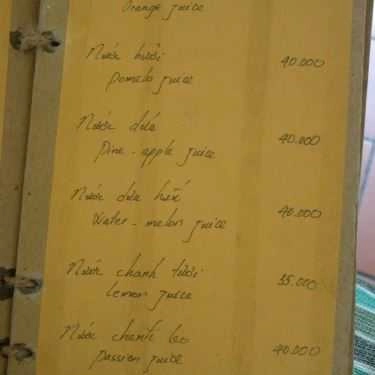 Orange juice
Nước bưởi 40.000
Pomelo juice
Nước dứa 40.000
Pine-apple juice
Nước dưa hấu 40.000
Water-melon juice
Nước chanh tươi 35.000
Lemon juice
Nước chanh leo 40.000
Passion juice